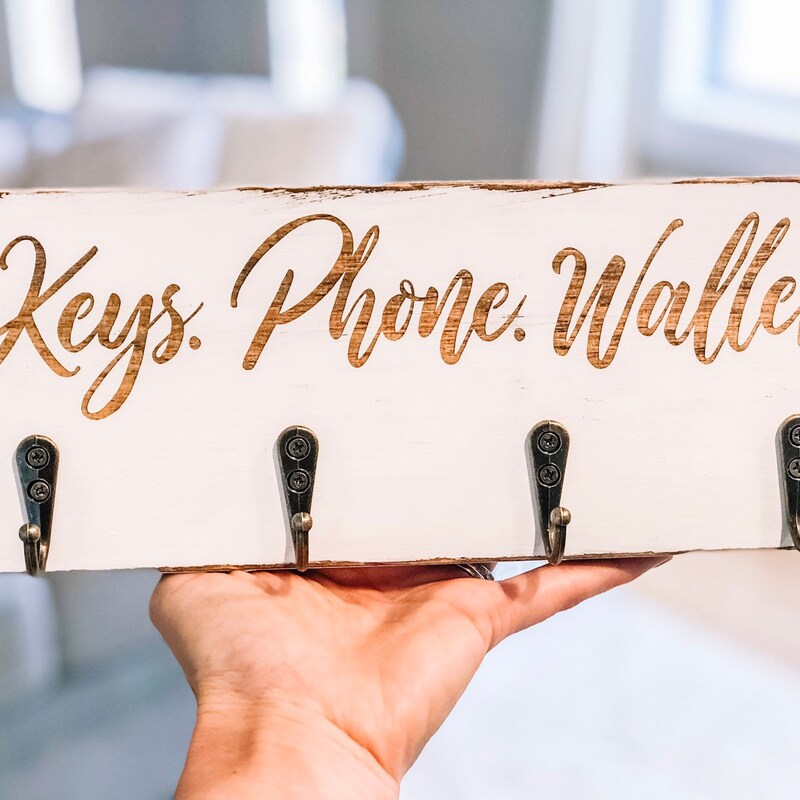 Keys. Phone. Walle